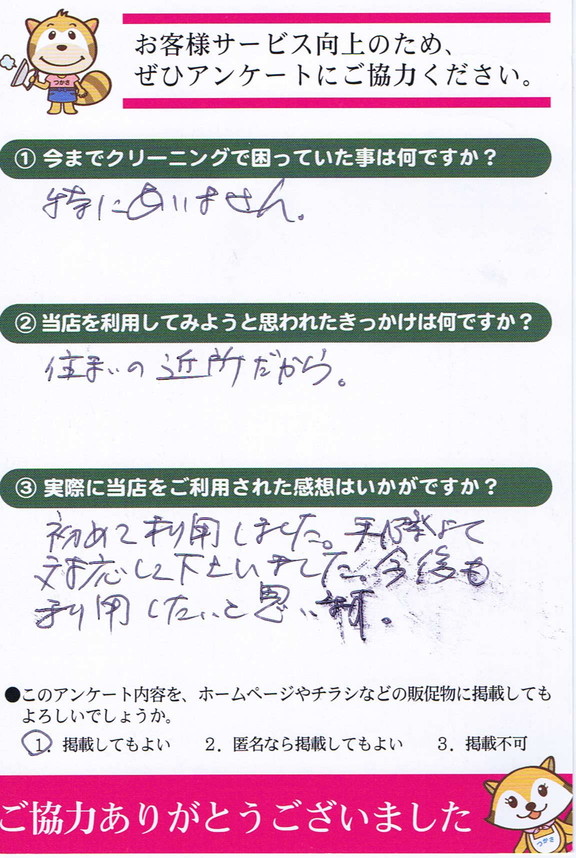 お客様サービス向上のため、
ぜひアンケートにご協力ください。
つかさ
① 今までクリーニングで困っていた事は何ですか？
特にありません。
② 当店を利用してみようと思われたきっかけは何ですか？
住まいの近所だから。
③ 実際に当店をご利用された感想はいかがですか？
初めて利用しました。手際よく
対応して下さいました。今後も
利用したいと思います。
●このアンケート内容を、ホームページやチラシなどの販促物に掲載しても
よろしいでしょうか。
1．掲載してもよい 2．匿名なら掲載してもよい 3．掲載不可
ご協力ありがとうございました
つかさ